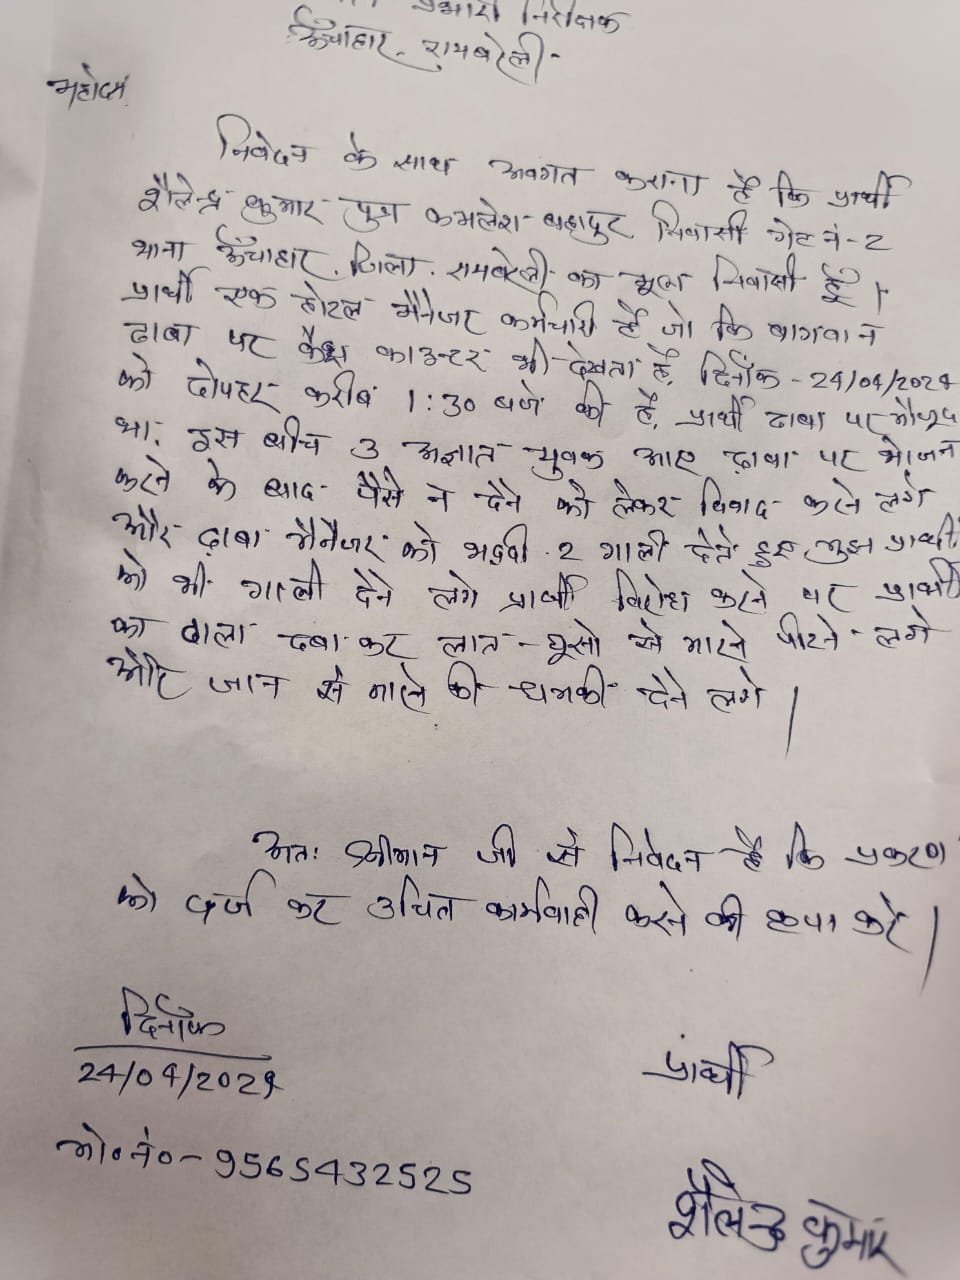 प्रभारी निरीक्षक
ऊँचाहार, रायबरेली-
महोदय
निवेदन के साथ अवगत कराना है कि प्रार्थी
शैलेन्द्र कुमार पुत्र कमलेश बहादुर निवासी गेट नं-2
थाना ऊँचाहार, जिला. रायबरेली का मूल निवासी हूँ।
प्रार्थी एक होटल मैनेजर कर्मचारी है जो कि बागवान
ढाबा पर कैश काउन्टर भी देखता है, दिनाँक-24/04/2024
को दोपहर करीब 1:30 बजे की है, प्रार्थी ढाबा पर मौजूद
था. इस बीच 3 अज्ञात युवक आए ढाबा पर भोजन
करने के बाद पैसे न देने को लेकर विवाद करने लगे
और ढाबा मैनेजर को भद्दी.2 गाली देते हुए मुझ प्रार्थी
को भी गाली देने लगे प्रार्थी विरोध करने पर प्रार्थी
का दबा कर लात-घूसो से मारने पीटने लगे
और जान से मारने की धमकी देने लगे।
अतः श्रीमान जी से निवेदन है कि प्रकरण
को दर्ज कर उचित कार्यवाही करने की कृपा करें।
दिनाँक
24/04/2024
प्रार्थी
मो०नं०-9565432525
शैलेन्द्र कुमार